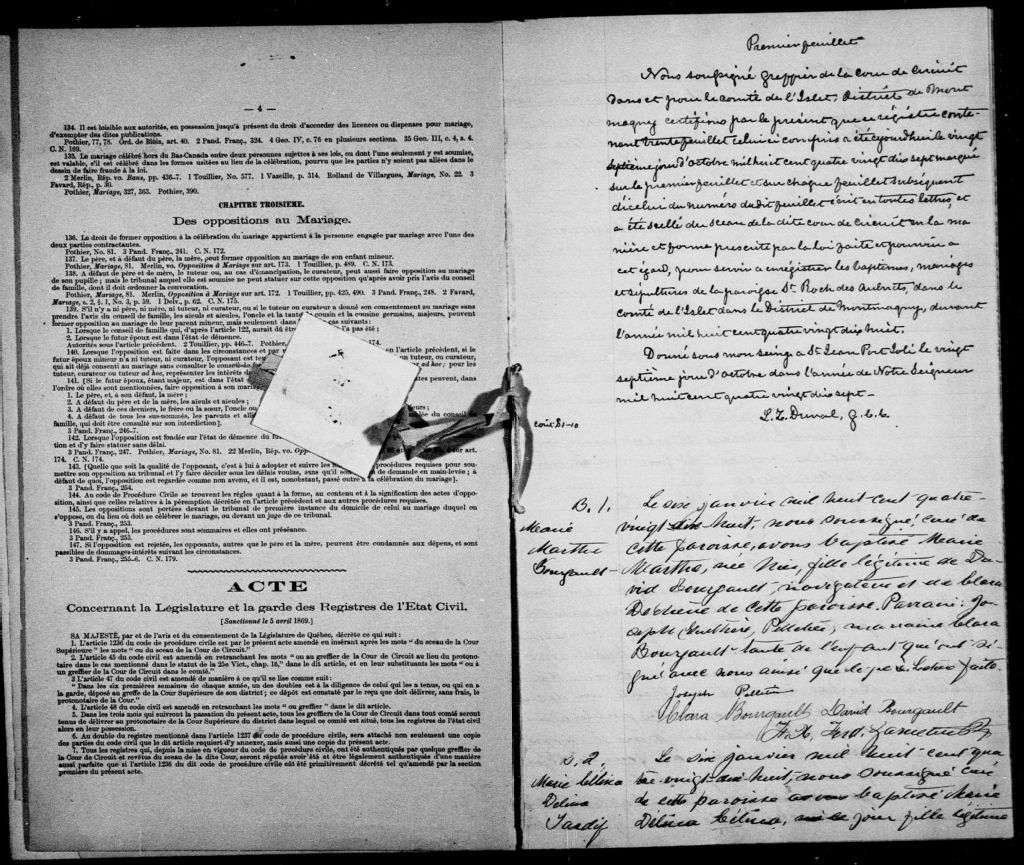 — 4 —
134. Il est loisible aux autorités, en possession jusqu'à présent du droit d'accorder des licences ou dispenses pour mariage,
d'exempter des dites publications.
Pothier, 77, 78. Ord. de Blois, art. 40. 2 Pand. Franç., 324. 4 Geo. IV, c. 76 en plusieurs sections. 35 Geo. III, c. 4, s. 4.
C. N. 169.
135. Le mariage célébré hors du Bas-Canada entre deux personnes sujettes à ses lois, ou dont l'une seulement y est soumise,
est valable, s'il est célébré dans les formes usitées au lieu de la célébration, pourvu que les parties n'y soient pas allées dans le
dessin de faire fraude à la loi.
2 Merlin, Rép. vo. Bans, pp. 436-7. 1 Touillier, No. 577. 1 Vazeille, p. 314. Rolland de Villargues, Mariage, No. 22. 3
Favard, Rép., p. 30.
Pothier, Mariage, 327, 363. Pothier, 390.
CHAPITRE TROISIEME.
Des oppositions au Mariage.
136. Le droit de former opposition à la célébration du mariage appartient à la personne engagée par mariage avec l'une des
deux parties contractantes.
Pothier, No. 81. 3 Pand. Franç., 241. C. N. 172.
137. Le père, et à défaut du père, la mère, peut former opposition au mariage de son enfant mineur.
Pothier, Mariage, 81. Merlin, vo. Opposition à Mariage sur art. 173. 1 Touillier, p. 489. C. N. 173.
138. A défaut de père et de mère, le tuteur ou, au cas d'émancipation, le curateur, peut aussi faire opposition au mariage
de son pupille ; mais le tribunal auquel elle est soumise ne peut statuer sur cette opposition qu'après avoir pris l'avis du conseil
de famille, dont il doit ordonner la convocation.
Pothier, Mariage, 81. Merlin, Opposition à Mariage sur art. 172. 1 Touillier, pp. 425, 490. 3 Pand. Franç., 248. 2 Favard,
Mariage, s. 2, § 1, No. 3, p. 59. 1 Delv., p. 62. C. N. 175.
139. S'il n'y a ni père, ni mère, ni tuteur, ni curateur, ou si le tuteur ou curateur a donné son consentement au mariage sans
prendre l'avis du conseil de famille, les aïeuls et aïeules, l'oncle et la tante, le cousin et la cousine germains, majeurs, peuvent
former opposition au mariage de leur parent mineur, mais seulement dans cas suivants :
1. Lorsque le conseil de famille qui, d'après l'article 122, aurait dû êtr l'a pas été ;
2. Lorsque le futur époux est dans l'état de démence.
Autorités sous l'article précédent. 2 Touillier, pp. 446-7. 174.
140. Lorsque l'opposition est faite dans les circonstances et par en l'article précédent, si le
futur époux mineur n'a ni tuteur, ni curateur, l'opposant est ten un tuteur, ou curateur,
qui ait déjà consenti au mariage sans consulter le conseil de f ad hoc ; pour les
tuteur, curateur ou tuteur ad hoc, représenter les intérêts d
141. [Si le futur époux, étant majeur, est dans l'état tes peuvent, dans
l'ordre où elles sont mentionnées, faire opposition à son maria
1. Le père, et, à son défaut, la mère ;
2. A défaut du père et de la mère, les aïeuls et aïeules ;
3. A défaut de ces derniers, le frère ou la sœur, l'oncle ou eurs ;
4. A défaut de tous les sus-nommés, les parents et all du conseil de
famille, qui doit être consulté sur son interdiction].
3 Pand. Franç., 246-7.
142. Lorsque l'opposition est fondée sur l'état de démence du fu
tion et d'y faire statuer sans délai.
3 Pand. Franç., 247. Pothier, Mariage, No. 81. 22 Merlin, Rép. vo. Opp sur art.
174. C. N. 174.
143. [Quelle que soit la qualité de l'opposant, c'est à lui à adopter et suivre les procédures requises pour sou-
mettre son opposition au tribunal et l'y faire décider sous les délais voulus, sans qu'il so de demande en main-levée ; à
défaut de quoi, l'opposition est regardée comme non avenu, et il est, nonobstant, passé outre à la célébration du mariage].
3 Pand. Franç., 254.
144. Au Code de Procédure Civile se trouvent les règles quant à la forme, au contenu et à la signification des actes d'oppo-
sition, ainsi que celles relatives à la péremption décrétée en l'article précédent et aux autres procédures requises.
145. Les oppositions sont portées devant le tribunal de première instance du domicile de celui au mariage duquel on
s'oppose, ou du lieu où doit se célébrer le mariage, ou devant un juge de ce tribunal.
3 Pand. Franç., 253.
146. S'il y a appel, les procédures sont sommaires et elles ont préséance.
3 Pand. Franç., 253.
147. Si l'opposition est rejetée, les opposants, autres que le père et la mère, peuvent être condamnés aux dépens, et sont
passibles de dommages-intérêts suivant les circonstances.
3 Pand. Franç., 255-6. C. N. 179.
ACTE
Concernant la Législature et la garde des Registres de l'Etat Civil.
[Sanctionné le 5 avril 1869.]
SA MAJESTÉ, par et de l'avis et du consentement de la Législature de Québec, décrète ce qui suit :
1. L'article 1236 du code de procédure civile est par le présent acte amendé en insérant après les mots " du sceau de la Cour
Supérieure " les mots " ou du sceau de la Cour de Circuit."
2. L'article 45 du code civil est amendé en retranchant les mots " ou au greffier de la Cour de Circuit au lieu du protono-
taire dans le cas mentionné dans le statut de la 25e Vict., chap. 16," dans le dit article, et en leur substituants les mots " ou à
un greffier de la Cour de Circuit dans le comté."
3 L'article 47 du code civil est amendé de manière à ce qu'il se lise comme suit :
" Dans les six premières semaines de chaque année, un des doubles est à la diligence de celui qui les a tenus, ou qui en a
la garde, déposé au greffe de la Cour Supérieure de son district ; ce dépôt est constaté par le reçu que doit délivrer, sans frais, le
protonotaire de la Cour."
4. L'article 48 du code civil est amendé en retranchant les mots " ou greffier " dans le dit article.
5. Dans les trois mois qui suivront la passation du présent acte, tous les greffiers de la Cour de Circuit dans tout comté seront
tenus de délivrer au protonotaire de la Cour Supérieure du district dans lequel ce comté est situé, tous les registres de l'état civil
alors en leur possession.
6. Au double du registre mentionné dans l'article 1237 du code de procédure civile, sera attaché non seulement une copie
des parties du code civil que le dit article requiert d'y annexer, mais aussi une copie du présent acte.
7. Tous les registres qui, depuis la mise en vigueur du code de procédure civile, ont été authentiqués par quelque greffier de
la Cour de Circuit et revêtus du sceau de la dite Cour, seront réputés avoir été et être légalement authentiqués d'une manière
aussi parfaite que si l'article 1236 du dit code de procédure civile eût été primitivement décrété tel qu'amendé par la section
première du présent acte.
Premier feuillet
Nous soussigné greffier de la Cour de Circuit
dans et pour le comté de l'Islet, District de Mont
magny certifions par le présent que ce régistre conte-
nant trente feuillet celui ici compris a été ajourd'hui le vingt
septième jour d'Octobre mil huit cent quatre vingt dix sept marqué
sur le premier feuillet et sur chaque feuillet subséquent
d'icelui du numéro du dit feuillet écrit en toutes lettres et
a été scellé du sceau de la dite cour de Circuit en la ma
nière et forme prescrite par la loi faite et pourvue a
cet égard, pour servir a enregistrer les baptemes, mariages
et sépultures de la paroisse St. Roch des Aulnets, dans le
comté de l'Islet dans le District de Montmagny, durant
l'année mil huit cent quatre vingt dix huit.
Donné sous mon seing a St Jean Port Joli le vingt
septième jour d'Octobre dans l'année de Notre Seigneur
mil huit cent quatre vingt dix sept —
L. Z. Duval, g. c. c.
B. 1.
Marie
Marthe
Bourgault
Le six janvier mil huit cent quatre-
vingt dix huit, nous soussigné curé de
cette paroisse, avons baptisé Marie
Marthe, née hier, fille légitime de Da-
vid Bourgault, navigateur et de Clara
Dechène de cette paroisse. Parrain : Jo-
seph Pelletier, marraine Clara
Bourgault tante de l'enfant qui ont si-
gné avec nous ainsi que le père. Lecture faite.
Joseph Pelletier
Clara Bourgault David Bourgault
B. 2.
Marie Célina
Délina
Tardif
Le six janvier mil huit cent qua
tre-vingt-dix huit, nous soussigné curé
de cette paroisse avons baptisé Marie
Délina Célina, née ce jour fille légitime